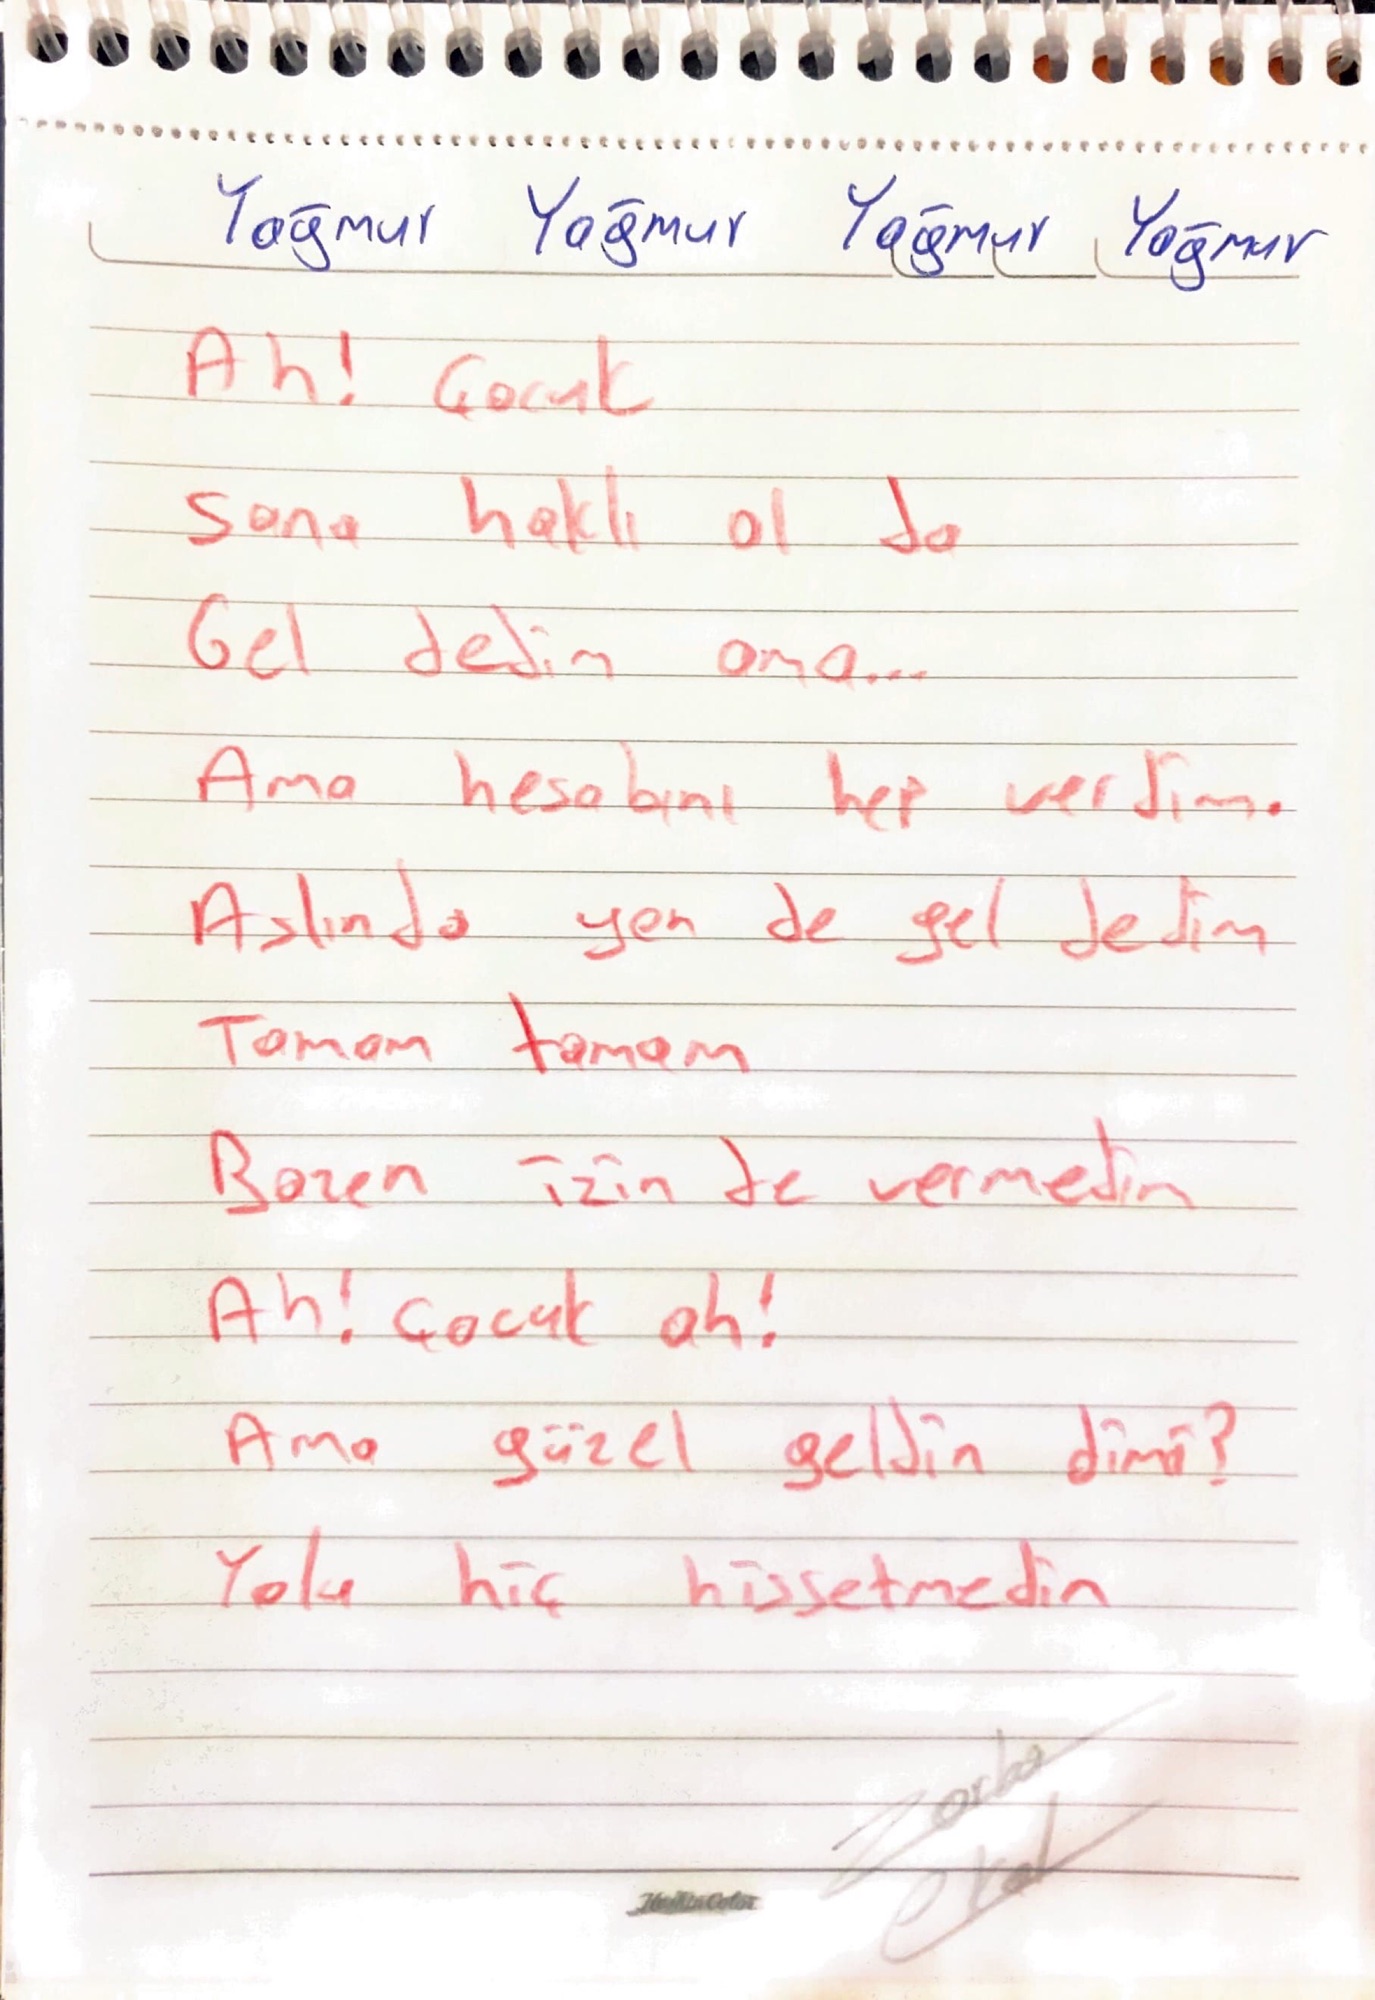 Yağmur Yağmur Yağmur Yağmur
Ah! Çocuk
Sana haklı ol da
Gel dedim ama...
Ama hesabını hep verdim.
Aslında yen de gel dedim
Tamam tamam
Bazen izin de vermedim
Ah! Çocuk ah!
Ama güzel geldin dimi?
Yolu hiç hissetmedin
Zorba